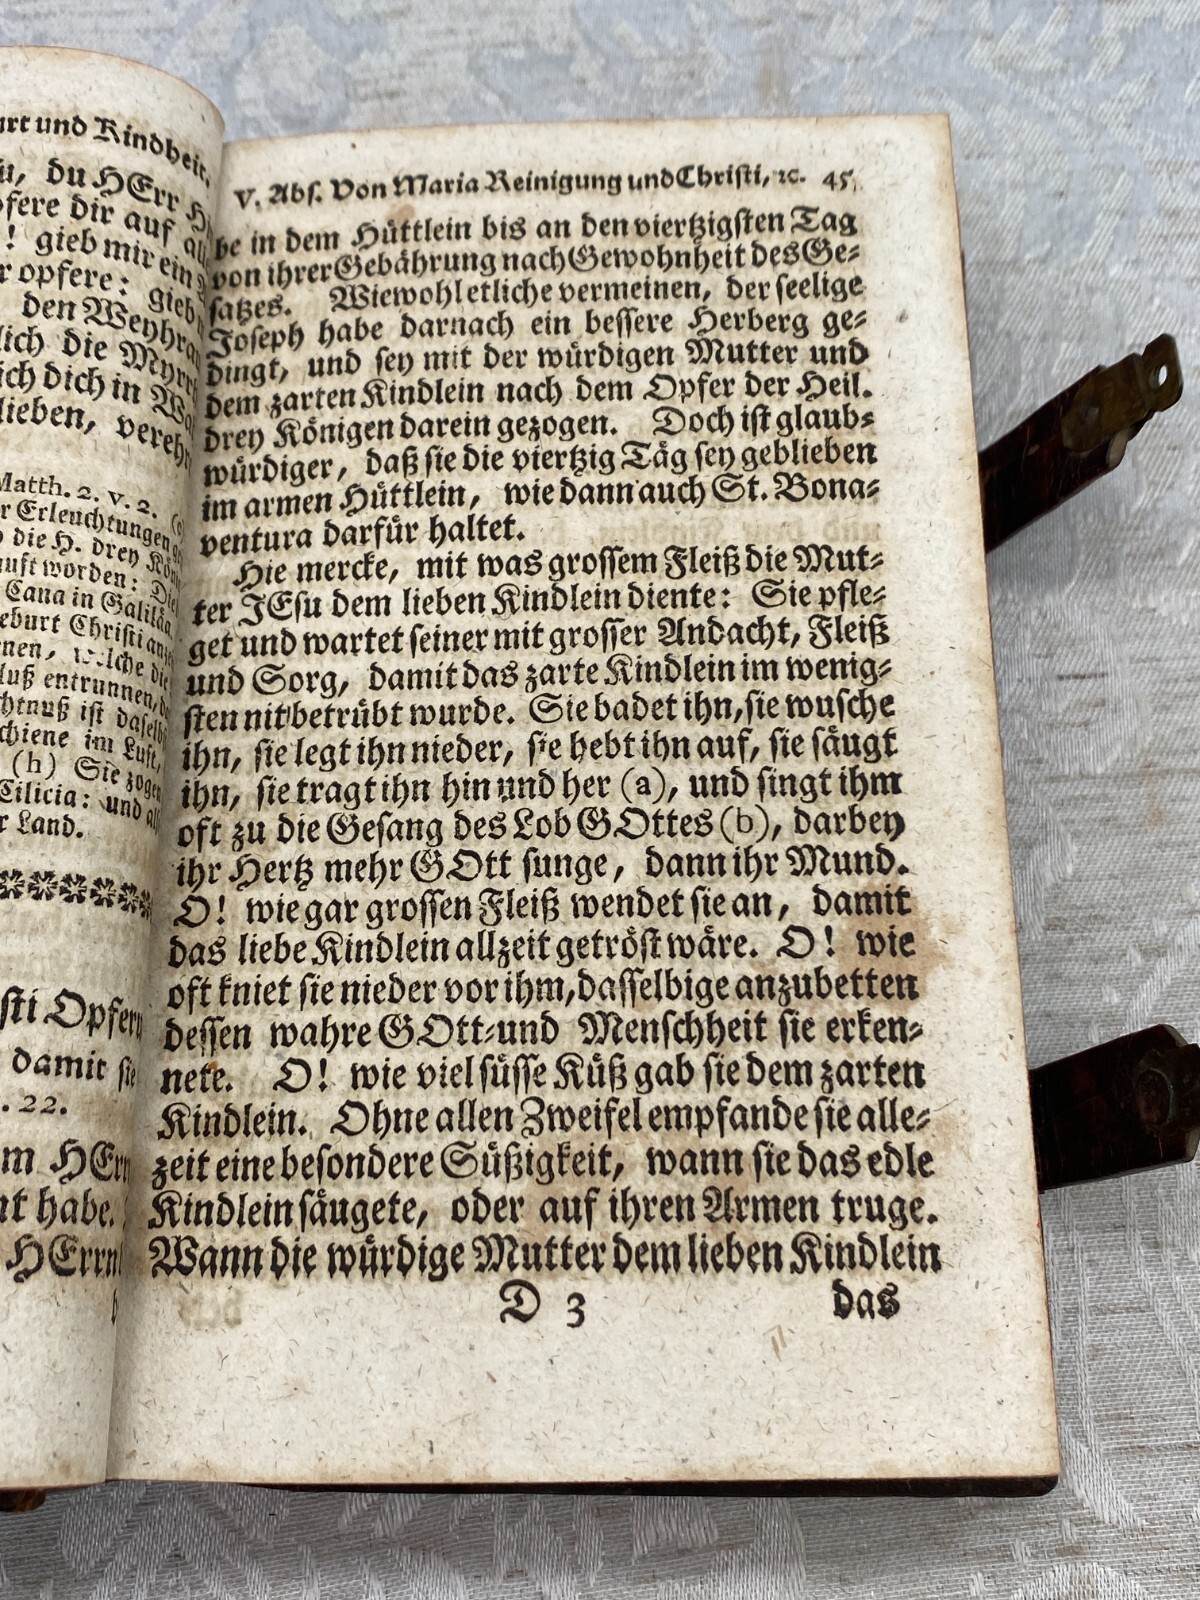 urt und Kindheit.
du HErr
fere dir auf
! gieb mir ein
r opfere: gieb
den Weyhra
lich die Myrr
ich dich in
lieben, verehr
Matth. 2. v. 2.
r Erleuchtungen
die H. drey Kön
auft worden: Die
Cana in Galiläa
eburt Christi
nen, welche die
luß entrunnen,
htnuß ist daselb
chiene im Luft,
(h) Sie zogen
Cilicia: und
r Land.
sti Opfer
damit sie
. 22.
m HErr
nt habe.
HErrn
V. Abs. Von Maria Reinigung und Christi, ꝛc. 45
be in dem Hüttlein bis an den viertzigsten Tag
von ihrer Gebährung nach Gewohnheit des Ge-
satzes. Wiewohl etliche vermeinen, der seelige
Joseph habe darnach ein bessere Herberg ge-
dingt, und sey mit der würdigen Mutter und
dem zarten Kindlein nach dem Opfer der Heil.
drey Königen darein gezogen. Doch ist glaub-
würdiger, daß sie die viertzig Täg sey geblieben
im armen Hüttlein, wie dann auch St. Bona-
ventura darfür haltet.
Hie mercke, mit was grossem Fleiß die Mut-
ter JEsu dem lieben Kindlein diente: Sie pfle-
get und wartet seiner mit grosser Andacht, Fleiß
und Sorg, damit das zarte Kindlein im wenig-
sten nit betrübt wurde. Sie badet ihn, sie wusche
ihn, sie legt ihn nieder, sie hebt ihn auf, sie säugt
ihn, sie tragt ihn hin und her (a), und singt ihm
oft zu die Gesang des Lob GOttes (b), darbey
ihr Hertz mehr GOtt sunge, dann ihr Mund.
O! wie gar grossen Fleiß wendet sie an, damit
das liebe Kindlein allzeit getröst wäre. O! wie
oft kniet sie nieder vor ihm, dasselbige anzubetten
dessen wahre GOtt- und Menschheit sie erken-
nete. O! wie viel süsse Küß gab sie dem zarten
Kindlein. Ohne allen Zweifel empfande sie alle-
zeit eine besondere Süßigkeit, wann sie das edle
Kindlein säugete, oder auf ihren Armen truge.
Wann die würdige Mutter dem lieben Kindlein
D 3 das